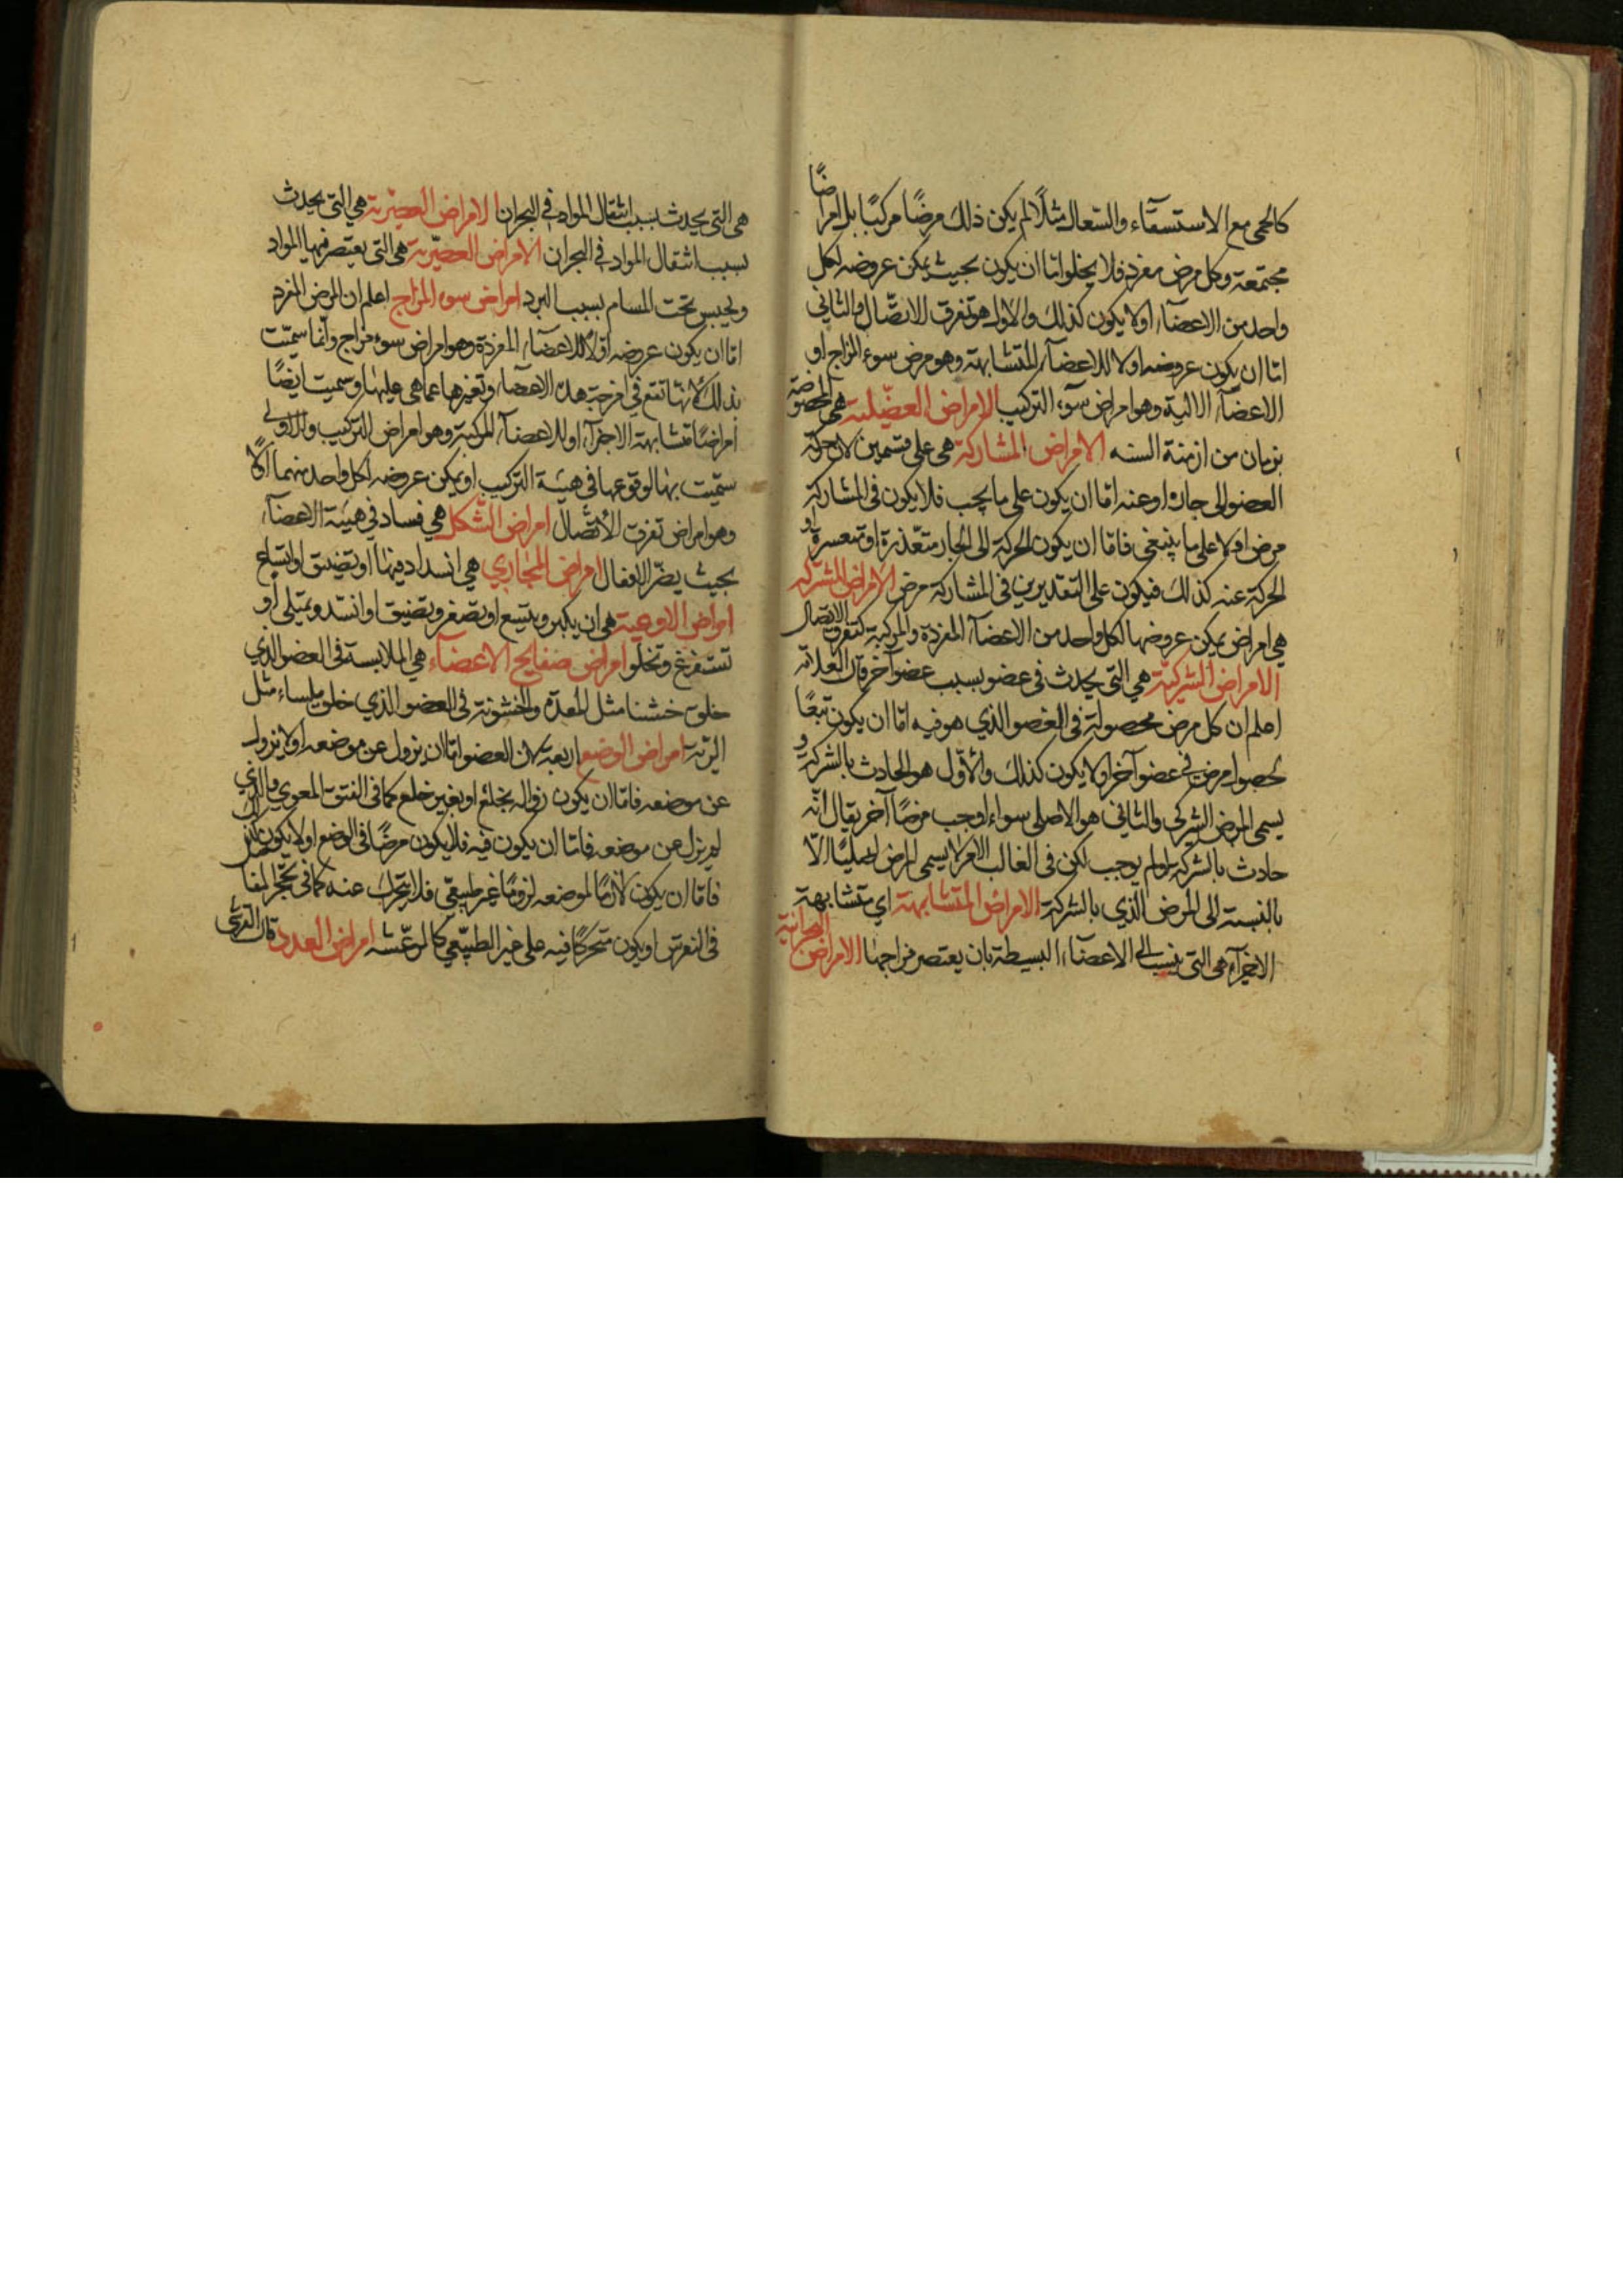 كالحمى مع الاستسقآء والسّعال مثلًا لم يكن ذلك مرضًا مركبًا بل امراضًا
مجتمعة وكل مرض مفرد فلا يخلوا امّا ان يكون بحيث يمكن عروضه لكل
واحد من الاعضآء اولا يكون كذلك والاول هو تفرق الاتصّال والثاني
امّا ان يكون عروضه اولا للاعضآء المتشابهة وهو مرض سوء المزاج او
الاعضآء الالية وهو امراض سوء التركيب الامراض الفصلية هي المخصوصة
بزمان من ازمنة السنه الامراض المشاركة هي على قسمين لان حركة
العضو الى جاره اوعنه امّا ان يكون على ما يجب فلا يكون فى المشاركة
مرض اولا على ما ينبغى فامّا ان يكون الحركة الى الجار متعّذرة او متعسرة او
الحركة عنه كذلك فيكون على التقديرين فى المشاركة مرض الامراض المشتركه
هي امراض يمكن عروضها لكل واحد من الاعضآء المفردة والمركبة كتفرق الاتصال
الامراض الشركيّة هي التى يحدث فى عضو بسبب عضو آخر قال العلامّه
اعلم ان كل مرض محصوله فى العضو الذي هو فيه امّا ان يكون تبعًا
لحصول مرض فى عضو آخر اولا يكون كذلك والأوّل هو الحادث بالشركة و
يسمى المرض الشركى والثاني هو الاصلى سواء اوجب مرضًا آخر يقال انّه
حادث بالشركة او لم يوجب لكن فى الغالب الامر لا يسمى المرض اصليًا الّا
بالنسبة الى المرض الّذي بالشركة الامراض المتشابهة اي متشابهة
الاجزآء هى التى ينسب الى الاعضآء البسيطة بان يعتصر مزاجها الامراض البحرانية
هى التى يحدث بسبب انتقال المواد فى البحران الامراض العصيّرية هي التى يحدث
بسبب انتقال المواد فى البحران الامراض العصيّرية هى التى يعتصر فيها المواد
ويحبس تحت المسام بسبب البرد امراض سوء المزاج اعلم ان المرض المفرد
امّا ان يكون عروضه اوّلًا للاعضآء المفردة وهو امراض سوء مزاج وانّما سمّيت
بذلك لانّها تقع في امزجة هذه الاعضآء وتغيّرها عما هى عليها وسميت ايضًا
أمراضًا متشابهة الاجزآء او للاعضآء المركبة وهو امراض التركيب والاولى
سمّيت بها لوقوعها فى هيئة التركيب او يمكن عروضه لكل واحد منهما اوّلًا
وهو امراض تفرق الاتصّال امراض الشكل هي فساد في هيئة الاعضآء
بحيث يضرّ الافعال امراض المجاري هي انسداد فيها او تضيق او اتساع
امراض الاوعية هى ان يكبر ويتسع او تصغر وتضيق او انسّد ويمتلى او
تستفرغ وتخلو امراض صفايح الاعضآء هي الملابسة فى العضو الذي
خلق خشنا مثل المعدة والخشونة فى العضو الذي خلق ملساء مثل
الريّة امراض الوضع اربعة لان العضو امّا ان يزول عن موضعه اولا يزول
عن موضعه فامّا ان يكون زواله بخلع او بغير خلع كما فى الفتق المعوي والذي
لم يزل عن موضعه فامّا ان يكون فيه فلا يكون مرضًا فى الوضع اولا يكون
فامّا ان يكون لازمًا لموضعه لزومًا غير طبيعّى فلا يتحرك عنه كما فى تحجّر المفاصل
فى النقرس او يكون متحركًا فيه على غير الطبيّعي كالرعّشه امراض العدد قال القرشى